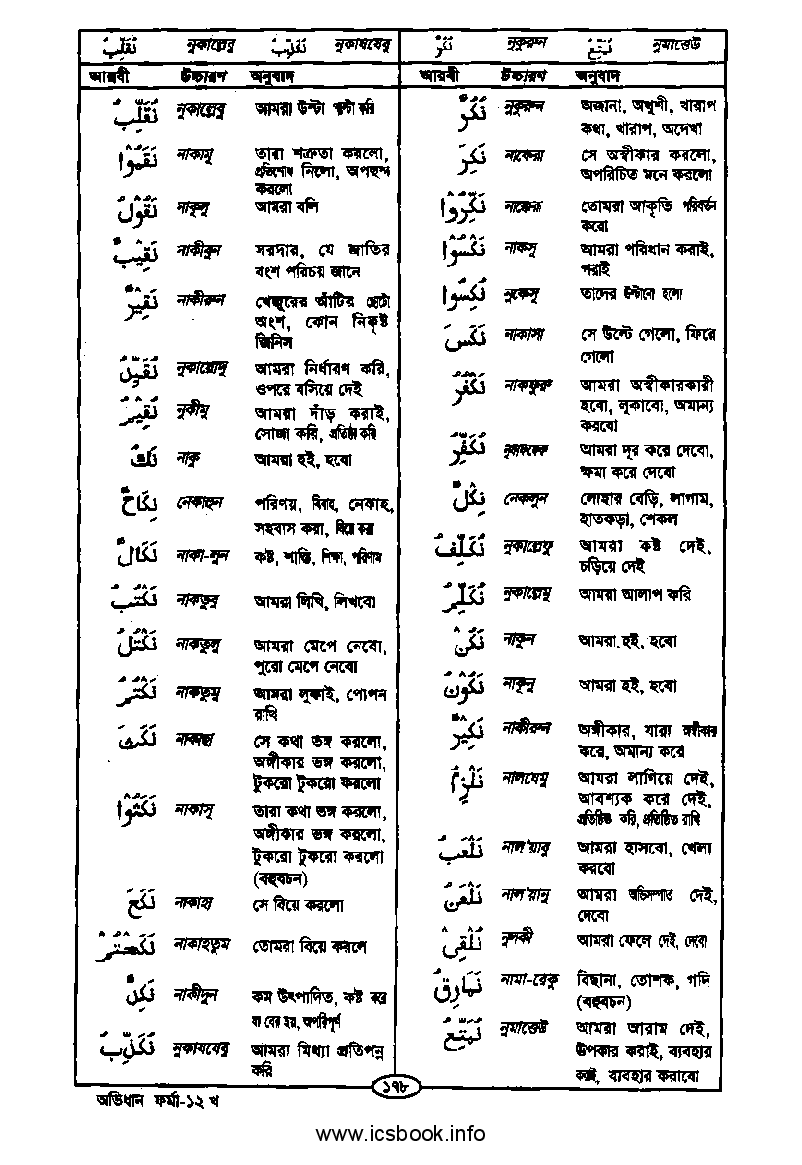 نُقَلِّبُ নুকাল্লেবু نُكَذِّبُ নুকাযযেবু
আরবী উচ্চারণ অনুবাদ
نُقَلِّبُ নুকাল্লেবু আমরা উল্টা পাল্টা করি
نَقَمُوا নাকামূ তারা শত্রুতা করলো,
প্রতিশোধ নিলো, অপছন্দ
করলো
نَقُولُ নাকূলু আমরা বলি
نَقِيْبٌ নাকীবুন সরদার, যে জাতির
বংশ পরিচয় জানে
نَقِيْرٌ নাকীরুন খেজুরের আঁটির ছোটো
অংশ, কোন নিকৃষ্ট
জিনিস
نُقَيِّضُ আমরা নির্ধারণ করি,
ওপরে বসিয়ে দেই
نُقِيْمُ নুকীমু আমরা দাঁড় করাই,
সোজা করি, প্রতিষ্ঠা করি
نَكُ নাকু আমরা হই, হবো
نِكَاحٌ নেকাহুন পরিণয়, বিবাহ, নেকাহ,
সহবাস করা, বিয়ে করা
نَكَالٌ নাকা-লুন কষ্ট, শাস্তি, শিক্ষা, পরিণাম
نَكْتُبُ নাকতুবু আমরা লিখি, লিখবো
نَكْتَلْ নাকতুলু আমরা মেপে নেবো,
পুরো মেপে নেবো
نَكْتُمُ নাকতুমু আমরা লুকাই, গোপন
রাখি
نَكَثَ নাকাছা সে কথা ভঙ্গ করলো,
অঙ্গীকার ভঙ্গ করলো,
টুকরো টুকরো করলো
نَكَثُوا নাকাসূ তারা কথা ভঙ্গ করলো,
অঙ্গীকার ভঙ্গ করলো,
টুকরো টুকরো করলো
(বহুবচন)
نَكَحَ নাকাহা সে বিয়ে করলো
نَكَحْتُمْ নাকাহতুম তোমরা বিয়ে করলে
نَكِدٌ নাকীদুন কম উৎপাদিত, কষ্ট করে
যা বের হয়, অপরিপূর্ণ
نُكَذِّبُ নুকাযযেবু আমরা মিথ্যা প্রতিপন্ন
করি
نُكُرٌ নুকুরুন نُمَتِّعُ নুমাত্তেউ
আরবী উচ্চারণ অনুবাদ
نُكُرٌ নুকুরুন অজানা, অখুশী, খারাপ
কথা, খারাপ, অদেখা
نَكِرَ নাকেরা সে অস্বীকার করলো,
অপরিচিত মনে করলো
نَكِّرُوْا নাক্কেরূ তোমরা আকৃতি পরিবর্তন
করো
نَكْسُوْا নাকসূ আমরা পরিধান করাই,
পরাই
نُكِسُوْا নুকেসূ তাদের উল্টানো হলো
نَكَصَ নাকাসা সে উল্টে গেলো, ফিরে
গেলো
نَكْفُرُ নাকফুরু আমরা অস্বীকারকারী
হবো, লুকাবো, অমান্য
করবো
نُكَفِّرُ আমরা দূর করে দেবো,
ক্ষমা করে দেবো
نِكْلٌ নেকলুন লোহার বেড়ি, লাগাম,
হাতকড়া, শেকল
نُكَلِّفُ নুকাল্লেফু আমরা কষ্ট দেই,
চড়িয়ে দেই
نُكَلِّمُ নুকাল্লেমু আমরা আলাপ করি
نَكُنْ নাকুন আমরা হই, হবো
نَكُوْنُ নাকূনু আমরা হই, হবো
نَكِيْرٌ নাকীরুন অঙ্গীকার, যারা অস্বীকার
করে, অমান্য করে
نَلْزِمُ নালযেমু আমরা লাগিয়ে দেই,
আবশ্যক করে দেই,
প্রতিষ্ঠিত করি, প্রতিষ্ঠিত রাখি
نَلْعَبُ নাল'য়াবু আমরা হাসবো, খেলা
করবো
نَلْعَنُ নাল'য়ানু আমরা অভিসম্পাত দেই,
দেবো
نُلْقِىْ নুলকী আমরা ফেলে দেই, দেবো
نَمَارِقُ নামা-রেকু বিছানা, তোশক, গদি
(বহুবচন)
نُمَتِّعُ নুমাত্তেউ আমরা আরাম দেই,
উপকার করাই, ব্যবহার
করাই, ব্যবহার করাবো
১৭৮
অভিধান ফর্মা-১২ খ
www.icsbook.info